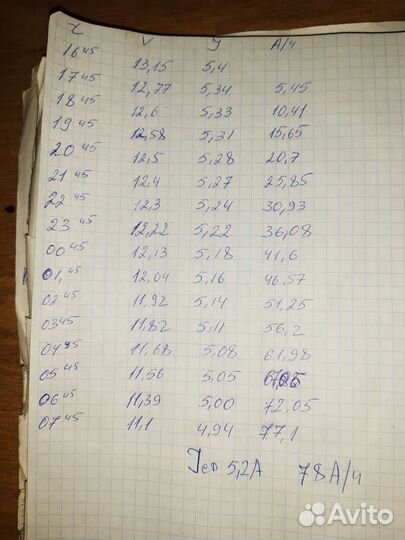 t V J А/ч
16⁴⁵ 13,15 5,4
17⁴⁵ 12,77 5,34 5,45
18⁴⁵ 12,6 5,33 10,41
19⁴⁵ 12,58 5,31 15,65
20⁴⁵ 12,5 5,28 20,7
21⁴⁵ 12,4 5,27 25,85
22⁴⁵ 12,3 5,24 30,93
23⁴⁵ 12,22 5,22 36,08
00⁴⁵ 12,13 5,18 41,6
01,⁴⁵ 12,04 5,16 46,57
02⁴⁵ 11,92 5,14 51,25
03⁴⁵ 11,82 5,11 56,2
04⁴⁵ 11,68 5,08 61,98
05⁴⁵ 11,56 5,05
06⁴⁵ 11,39 5,00 72,05
07⁴⁵ 11,1 4,94 77,1
Jср 5,2А 78А/ч
Avito